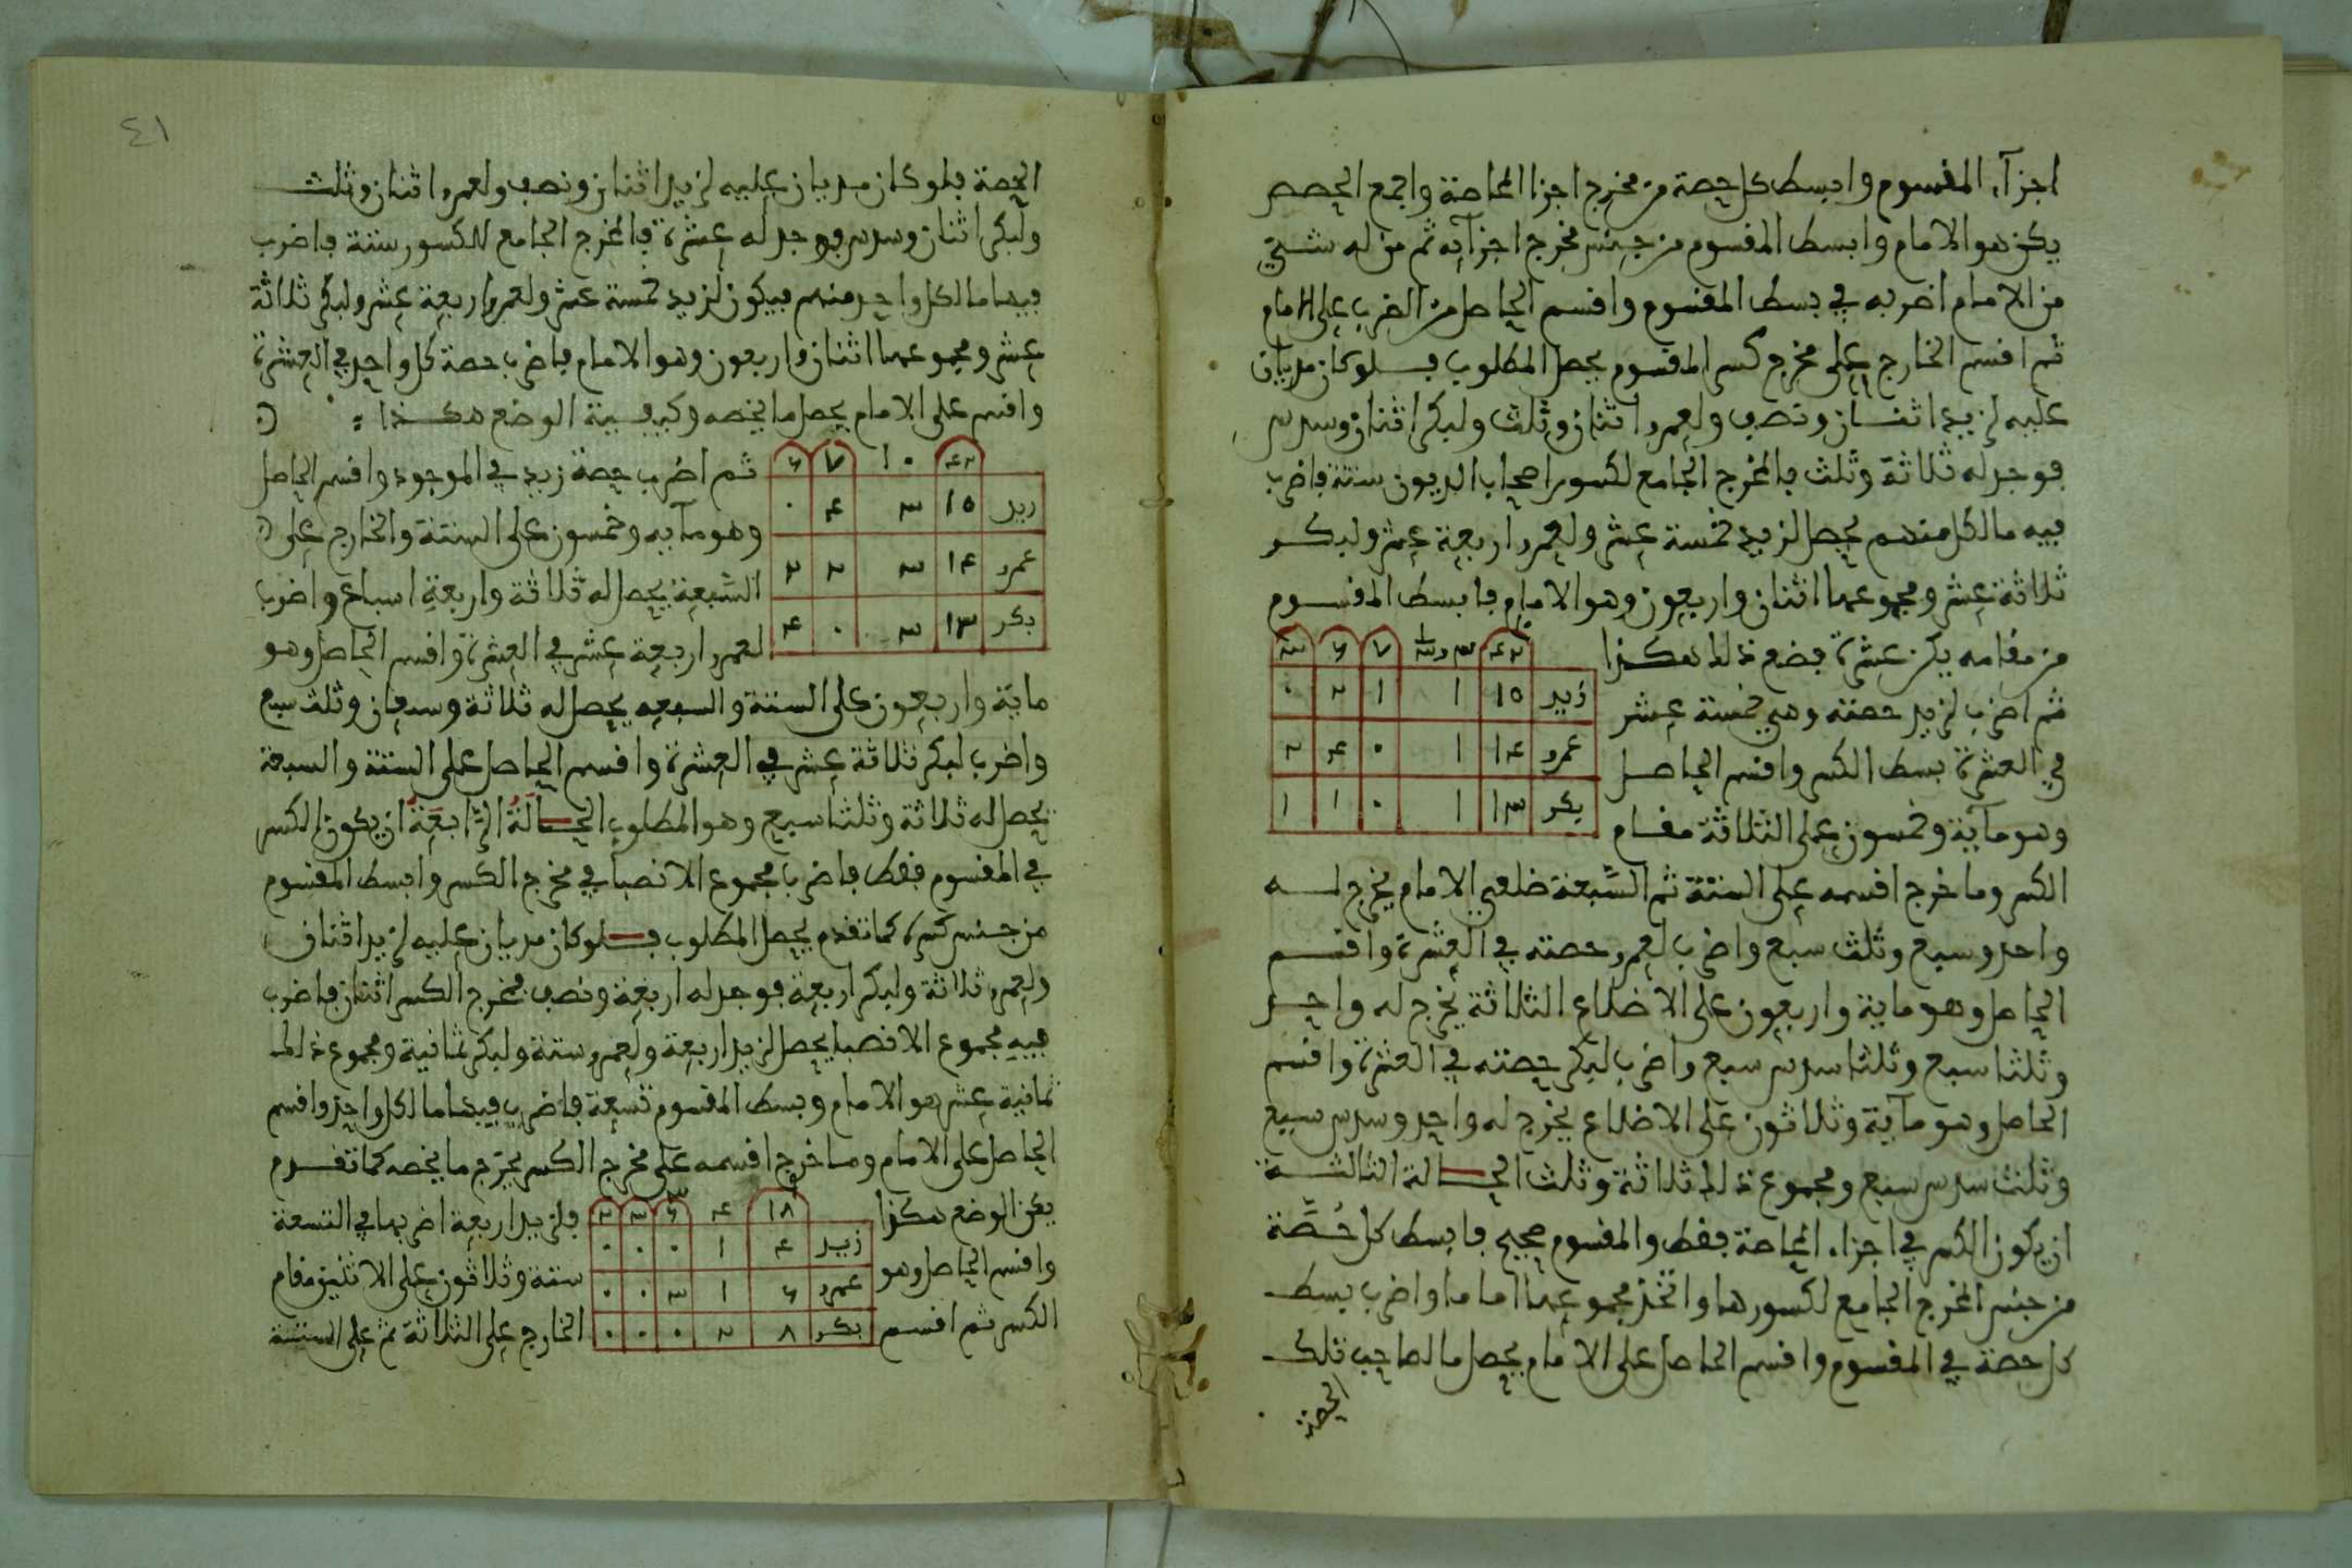 اجزآء المقسوم وابسط كل حصة من مخرج اجزا المحاصة واجمع الحصص
يكن هو الامام وابسط المقسوم من جنس مخرج اجزآيه ثم من له شيء
من الامام اضربه في بسط المقسوم واقسم الحاصل من الضرب على الامام
ثم اقسم الخارج على مخرج كسر المقسوم يحصل المطلوب فلو كان مديان
عليه لزيد اثنان ونصف ولعمرو اثنان وثلث ولبكر اثنان وسدس
فوجد له ثلاثة وثلث فالمخرج الجامع لكسور اصحاب الديون ستة فاضرب
فيه ما لكل منهم يحصل لزيد خمسة عشر ولعمرو اربعة عشر ولبكر
ثلاثة عشر ومجموعها اثنان واربعون وهو الامام فابسط المقسوم
من مقامه يكن عشرة فضع ذلك هكذا
٤٢ ٣ و ١/٣ ٧ ٦ ٣
ثم اضرب لزيد حصته وهي خمسة عشر
زيد ١٥ ١ ١ ٢ ٠
في العشرة بسط الكسر واقسم الحاصل
عمرو ١٤ ١ ٠ ٤ ٢
وهو مآية وخمسون على الثلاثة مقام
بكر ١٣ ١ ٠ ١ ١
الكسر وما خرج اقسمه على الستة ثم السّبعة ضلعي الامام يخرج له
واحد وسبع وثلث سبع واضرب لعمرو حصته في العشرة واقسم
الحاصل وهو ماية واربعون على الاضلاع الثلاثة يخرج له واحد
وثلثا سبع وثلثا سدس سبع واضرب لبكر حصته في العشرة واقسم
الحاصل وهو مآية وثلاثون على الاضلاع يخرج له واحد وسدس سبع
وثلث سدس سبع ومجموع ذلك ثلاثة وثلث الحالة الثالثة
ان يكون الكسر في اجزاء المحاصة فقط والمقسوم صحيح فابسط كل حصّة
من جنس المخرج الجامع لكسورها واتخذ مجموعها اماما واضرب بسط
كل حصة في المقسوم واقسم الحاصل على الامام يحصل ما لصاحب تلك
الحصة
٤١
الحصة فلو كان مديان عليه لزيد اثنان ونصف ولعمرو اثنان وثلث
ولبكر اثنان وسدس فوجد له عشرة فالمخرج الجامع للكسور ستة فاضرب
فيها ما لكل واحد منهم فيكون لزيد خمسة عشر ولعمرو اربعة عشر ولبكر ثلاثة
عشر ومجموعها اثنان واربعون وهو الامام فاضرب حصة كل واحد في العشرة
واقسم على الامام يحصل ما يخصه وكيفية الوضع هكذا
٤٢ ١٠ ٧ ٦
ثم اضرب حصة زيد في الموجود واقسم الحاصل
زيد ١٥ ٣ ٤ ٠
وهو مآيه وخمسون على الستة والخارج على
عمرو ١٤ ٣ ٢ ٢
السّبعة يحصل له ثلاثة واربعة اسباع واضرب
بكر ١٣ ٣ ٠ ٤
لعمرو اربعة عشر في العشرة واقسم الحاصل وهو
ماية واربعون على الستة والسبعه يحصل له ثلاثة وسبعان وثلث سبع
واضرب لبكر ثلاثة عشر في العشرة واقسم الحاصل على الستة والسبعة
يحصل له ثلاثة وثلثا سبع وهو المطلوب الحالة الرّابعة ان يكون الكسر
في المقسوم فقط فاضرب مجموع الانصبا في مخرج الكسر وابسط المقسوم
من جنس كسره كما تقدم يحصل المطلوب فلو كان مديان عليه لزيد اثنان
ولعمرو ثلاثة ولبكر اربعة فوجد له اربعة ونصف فمخرج الكسر اثنان فاضرب
فيه مجموع الانصبا يحصل لزيد اربعة ولعمرو ستة ولبكر ثمانية ومجموع ذلك
ثمانية عشر هو الامام وبسط المقسوم تسعة فاضرب فيها ما لكل واحد واقسم
الحاصل على الامام وما خرج اقسمه على مخرج الكسر يخرج ما يخصه كما تقدم
يكن الوضع هكذا
١٨ ٤ ٦ ٣ ٢
فلزيد اربعة اضربها في التسعة
زيد ٤ ١ ٠ ٠ ٠
واقسم الحاصل وهو
ستة وثلاثون على الاثنين مقام
عمرو ٦ ١ ٣ ٠ ٠
الكسر ثم اقسم
الخارج على الثلاثة ثم على الستة
بكر ٨ ٢ ٠ ٠ ٠